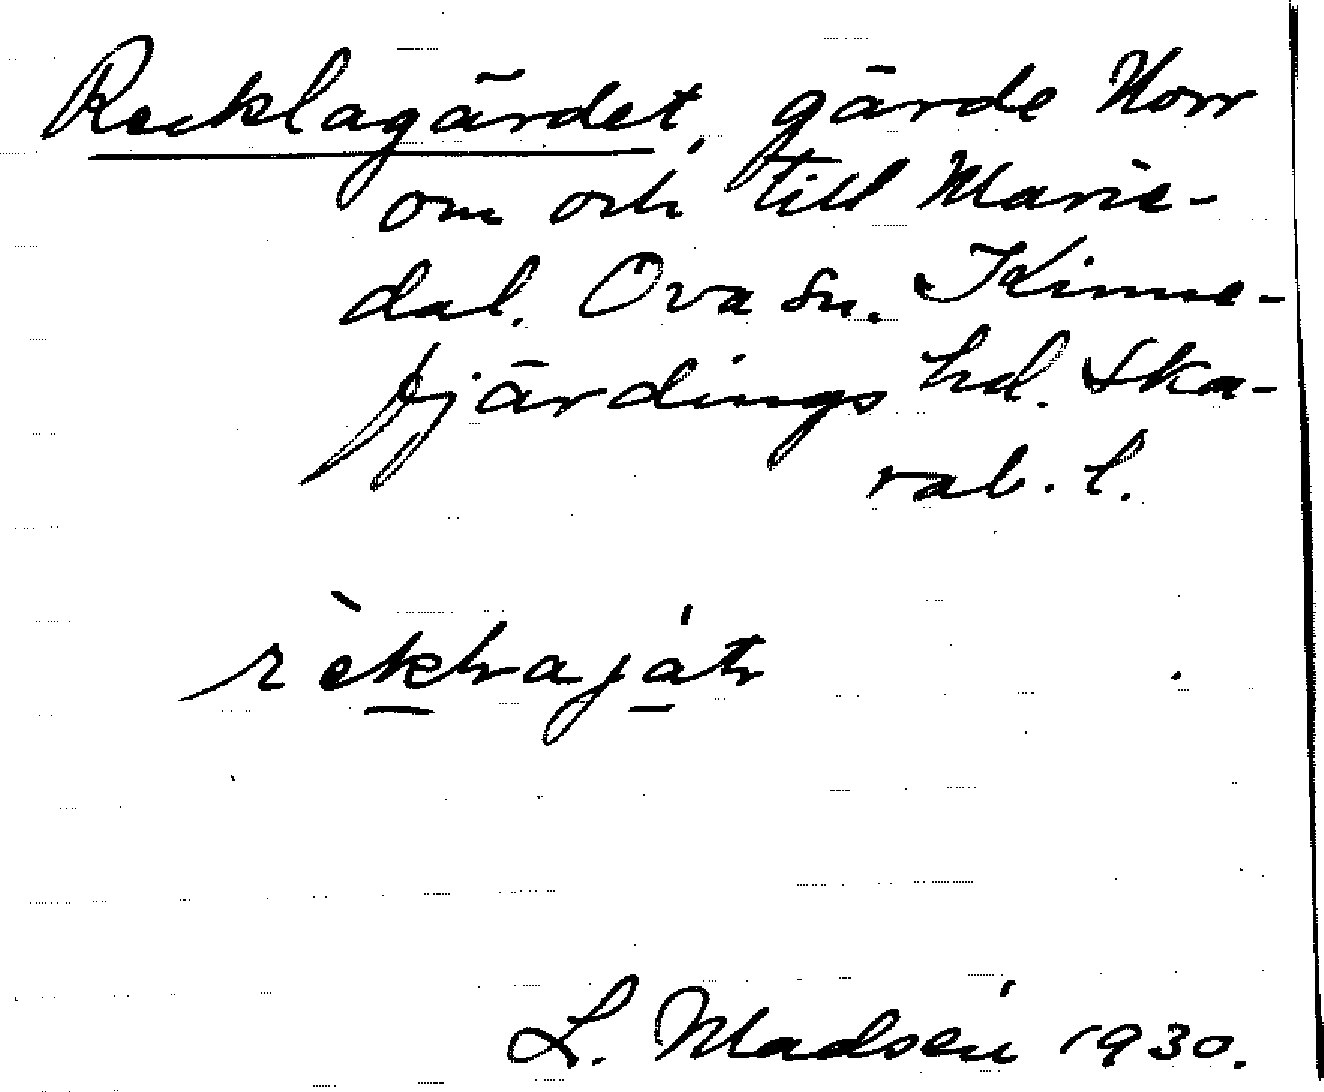 Recklagärdet, gärde Norr
om och till Marie-
dal. Ova sn. Kinne-
fjärdings hd. Ska-
rab. l.
L. Madsén 1930.